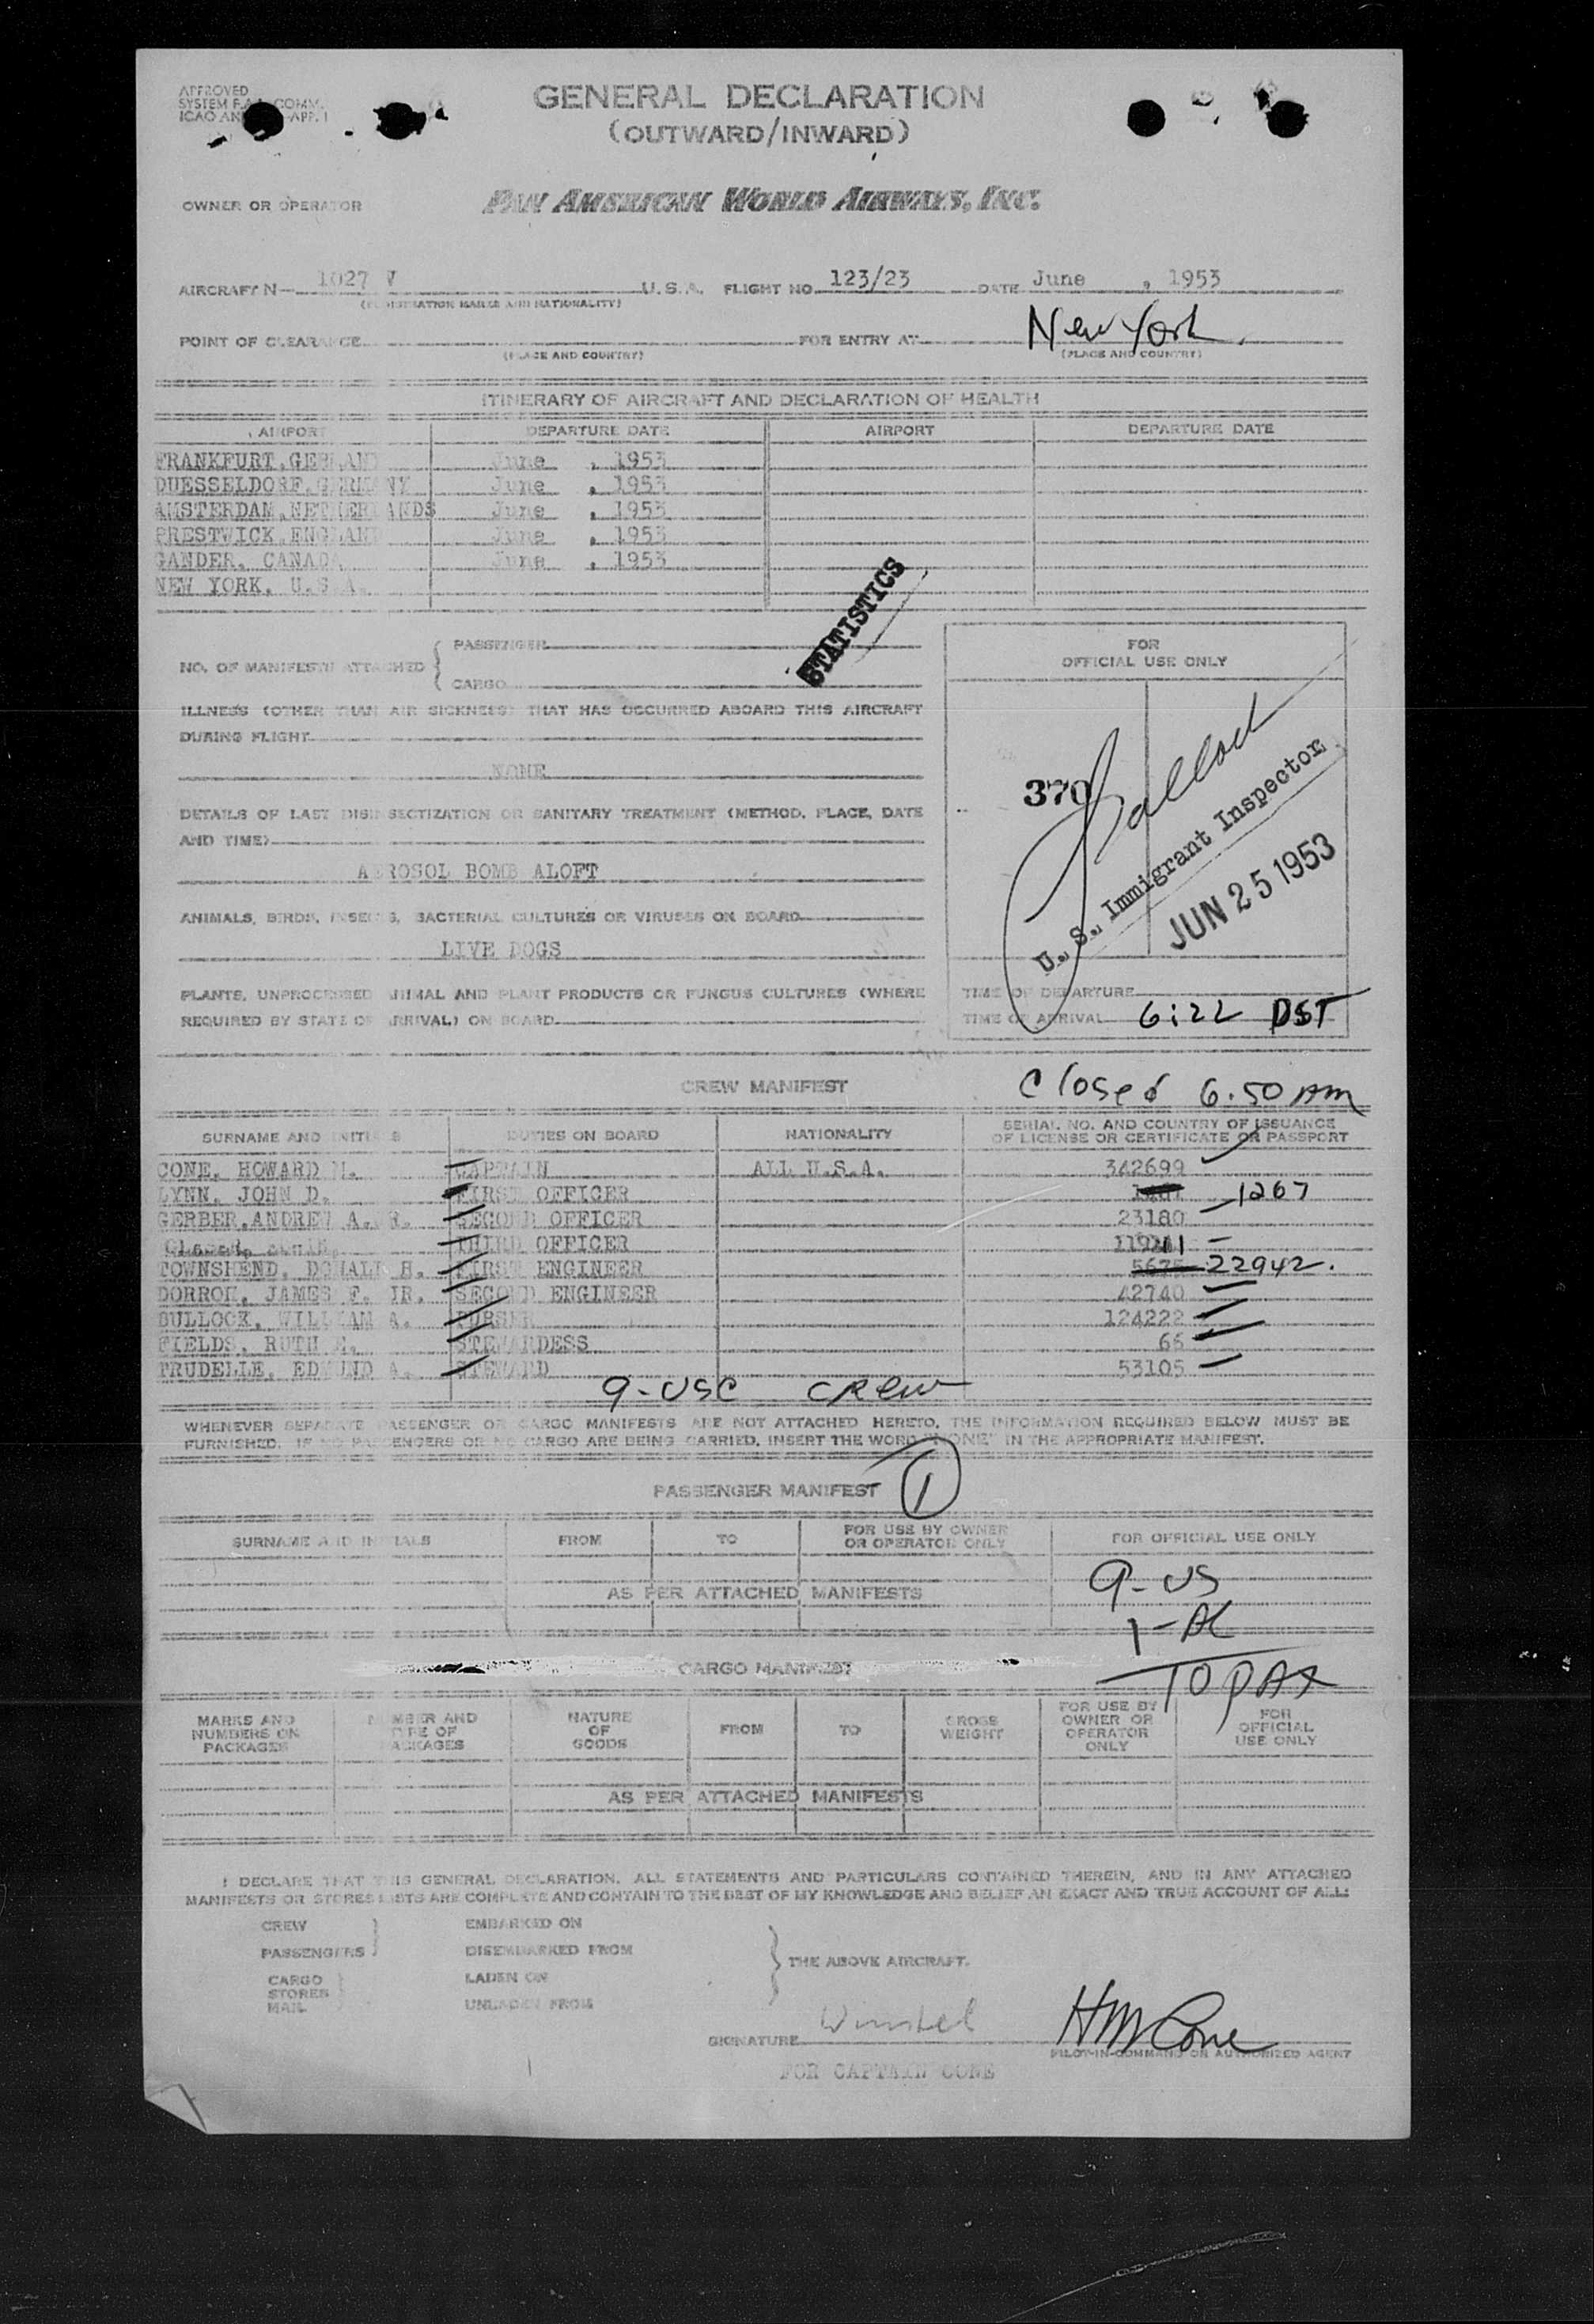 APPROVED
SYSTEM F.A.L. COMM.
ICAO APP. 1
GENERAL DECLARATION
(OUTWARD/INWARD)
OWNER OR OPERATOR PAN AMERICAN WORLD AIRWAYS, INC.
AIRCRAFT N— 1027 V U.S.A. FLIGHT NO. 123/23 DATE June , 1953
(REGISTRATION MARKS AND NATIONALITY)
POINT OF CLEARANCE FOR ENTRY AT New York
(PLACE AND COUNTRY) (PLACE AND COUNTRY)
ITINERARY OF AIRCRAFT AND DECLARATION OF HEALTH
AIRPORT DEPARTURE DATE AIRPORT DEPARTURE DATE
FRANKFURT, GERMANY June , 1953
DUESSELDORF, GERMANY June , 1953
AMSTERDAM, NETHERLANDS June , 1953
PRESTWICK, ENGLAND June , 1953
GANDER, CANADA June , 1953
NEW YORK, U.S.A.
STATISTICS
NO. OF MANIFESTS ATTACHED { PASSENGER
CARGO
FOR
OFFICIAL USE ONLY
ILLNESS (OTHER THAN AIR SICKNESS) THAT HAS OCCURRED ABOARD THIS AIRCRAFT
DURING FLIGHT
NONE
370
U. S. Immigrant Inspector
JUN 25 1953
DETAILS OF LAST DISINSECTIZATION OR SANITARY TREATMENT (METHOD, PLACE, DATE
AND TIME)
AEROSOL BOMB ALOFT
ANIMALS, BIRDS, INSECTS, BACTERIAL CULTURES OR VIRUSES ON BOARD
LIVE DOGS
PLANTS, UNPROCESSED ANIMAL AND PLANT PRODUCTS OR FUNGUS CULTURES (WHERE
REQUIRED BY STATE OF ARRIVAL) ON BOARD
TIME OF DEPARTURE
TIME OF ARRIVAL 6:22 DST
CREW MANIFEST Closed 6.50 AM
SURNAME AND INITIALS DUTIES ON BOARD NATIONALITY SERIAL NO. AND COUNTRY OF ISSUANCE
OF LICENSE OR CERTIFICATE OR PASSPORT
CONE, HOWARD M. CAPTAIN ALL U.S.A. 342699
LYNN, JOHN D. FIRST OFFICER 1267
GERBER, ANDREW A. SECOND OFFICER 23180
THIRD OFFICER
TOWNSHEND, DONALD H. FIRST ENGINEER 5675 22942.
DORROH, JAMES F. JR. SECOND ENGINEER 42740
BULLOCK, WILLIAM A. PURSER 124222
FIELDS, RUTH E. STEWARDESS 66
TRUDELLE, EDMUND A. STEWARD 53105
9-USC CREW
WHENEVER SEPARATE PASSENGER OR CARGO MANIFESTS ARE NOT ATTACHED HERETO, THE INFORMATION REQUIRED BELOW MUST BE
FURNISHED. IF NO PASSENGERS OR NO CARGO ARE BEING CARRIED, INSERT THE WORD "NONE" IN THE APPROPRIATE MANIFEST.
PASSENGER MANIFEST 1
SURNAME AND INITIALS FROM TO FOR USE BY OWNER
OR OPERATOR ONLY FOR OFFICIAL USE ONLY
AS PER ATTACHED MANIFESTS
9-US
1-AC
10 PAX
CARGO MANIFEST
MARKS AND
NUMBERS ON
PACKAGES
NUMBER AND
TYPE OF
PACKAGES
NATURE
OF
GOODS
FROM
TO
GROSS
WEIGHT
FOR USE BY
OWNER OR
OPERATOR
ONLY
FOR
OFFICIAL
USE ONLY
AS PER ATTACHED MANIFESTS
I DECLARE THAT THIS GENERAL DECLARATION, ALL STATEMENTS AND PARTICULARS CONTAINED THEREIN, AND IN ANY ATTACHED
MANIFESTS OR STORES LISTS ARE COMPLETE AND CONTAIN TO THE BEST OF MY KNOWLEDGE AND BELIEF AN EXACT AND TRUE ACCOUNT OF ALL:
CREW EMBARKED ON
PASSENGERS DISEMBARKED FROM
THE ABOVE AIRCRAFT.
CARGO LADEN ON
STORES
MAIL UNLADEN FROM
SIGNATURE HM Cone
PILOT-IN-COMMAND OR AUTHORIZED AGENT
FOR CAPTAIN CONE